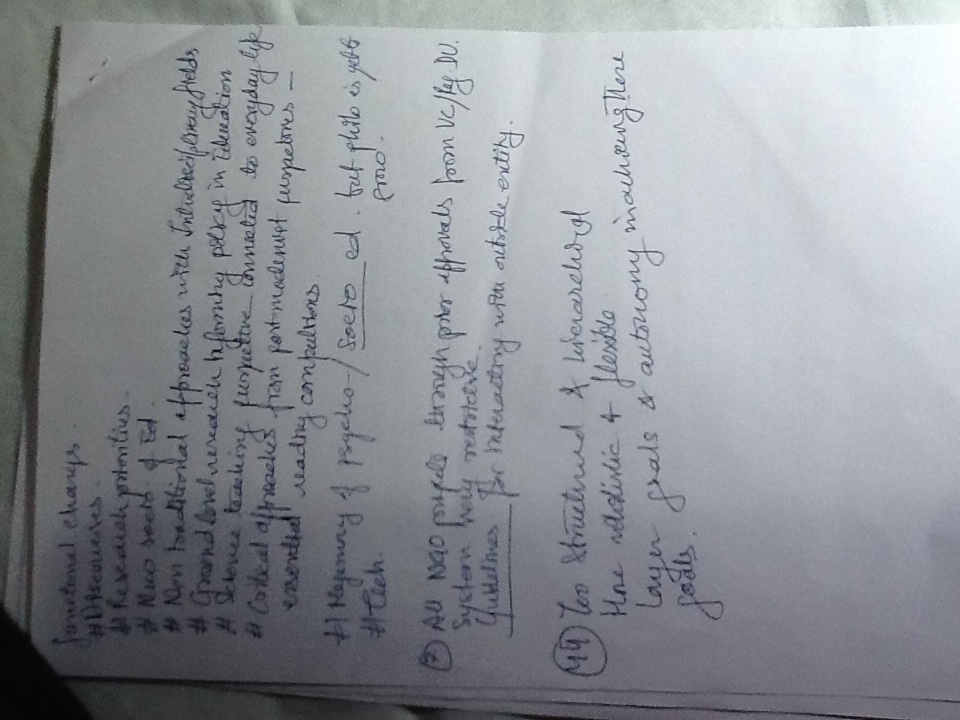 functional changes.
# Discourses.
# Research priorities.
# New socio of Ed.
# Non traditional approaches with Interdisciplinary fields
# Ground level research informing policy in Education
# Science teaching perspective connected to everyday life
# Critical approaches from post modernist perspectives –
essential reading compulsions.
# Hegemony of psycho-/ Socio ed. but philo is yet to
# Tech.
(7) All NGO people through prior approvals from VC/Reg DU.
System very restrictive.
Guidelines for interacting with outside entity.
(44) Too Structured & hierarchical
More realistic & flexible
Larger goals & autonomy in achieving there
goals.